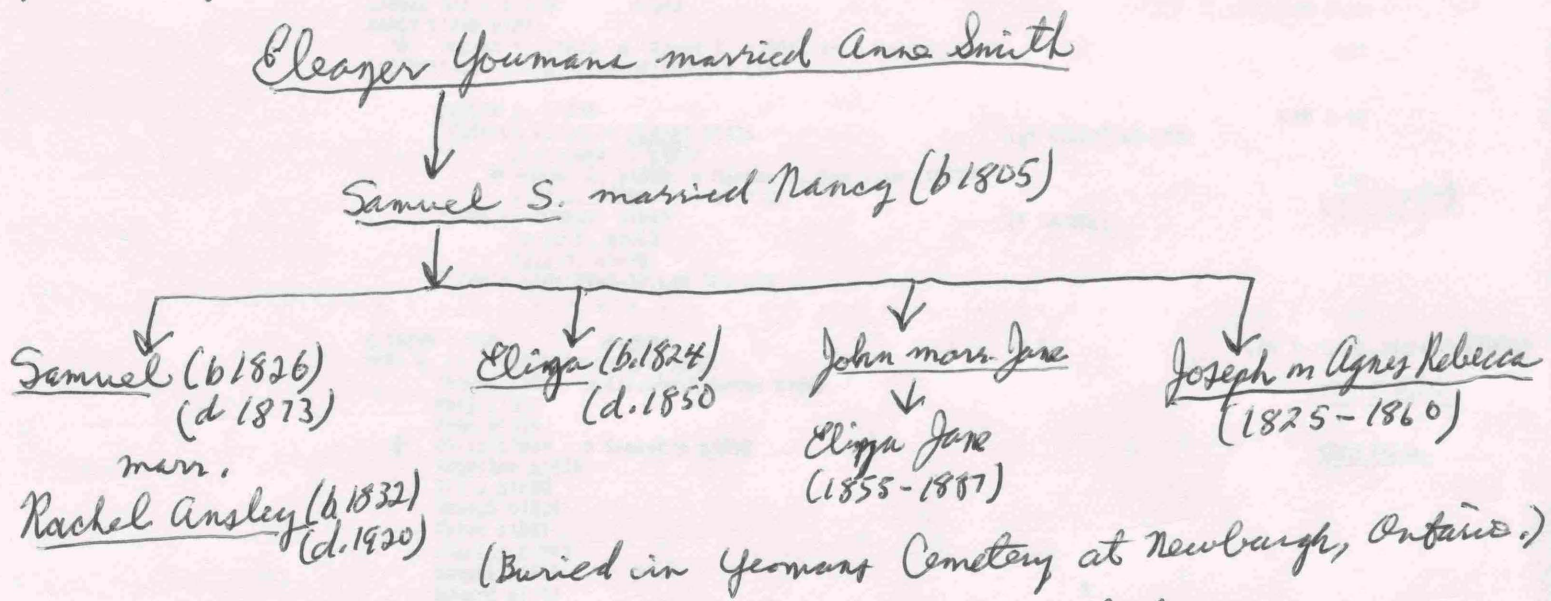 Eleazer Youmans married Anne Smith
Samuel S. married Nancy (b 1805)
Samuel (b 1826)
(d 1873)
marr.
Rachel Ansley (b. 1832)
(d. 1920)
Eliza (b. 1824)
(d. 1850
John marr. Jane
Eliza Jane
(1855-1887)
Joseph m Agnes Rebecca
(1825-1860)
(Buried in Yeomans Cemetery at Newburgh, Ontario.)